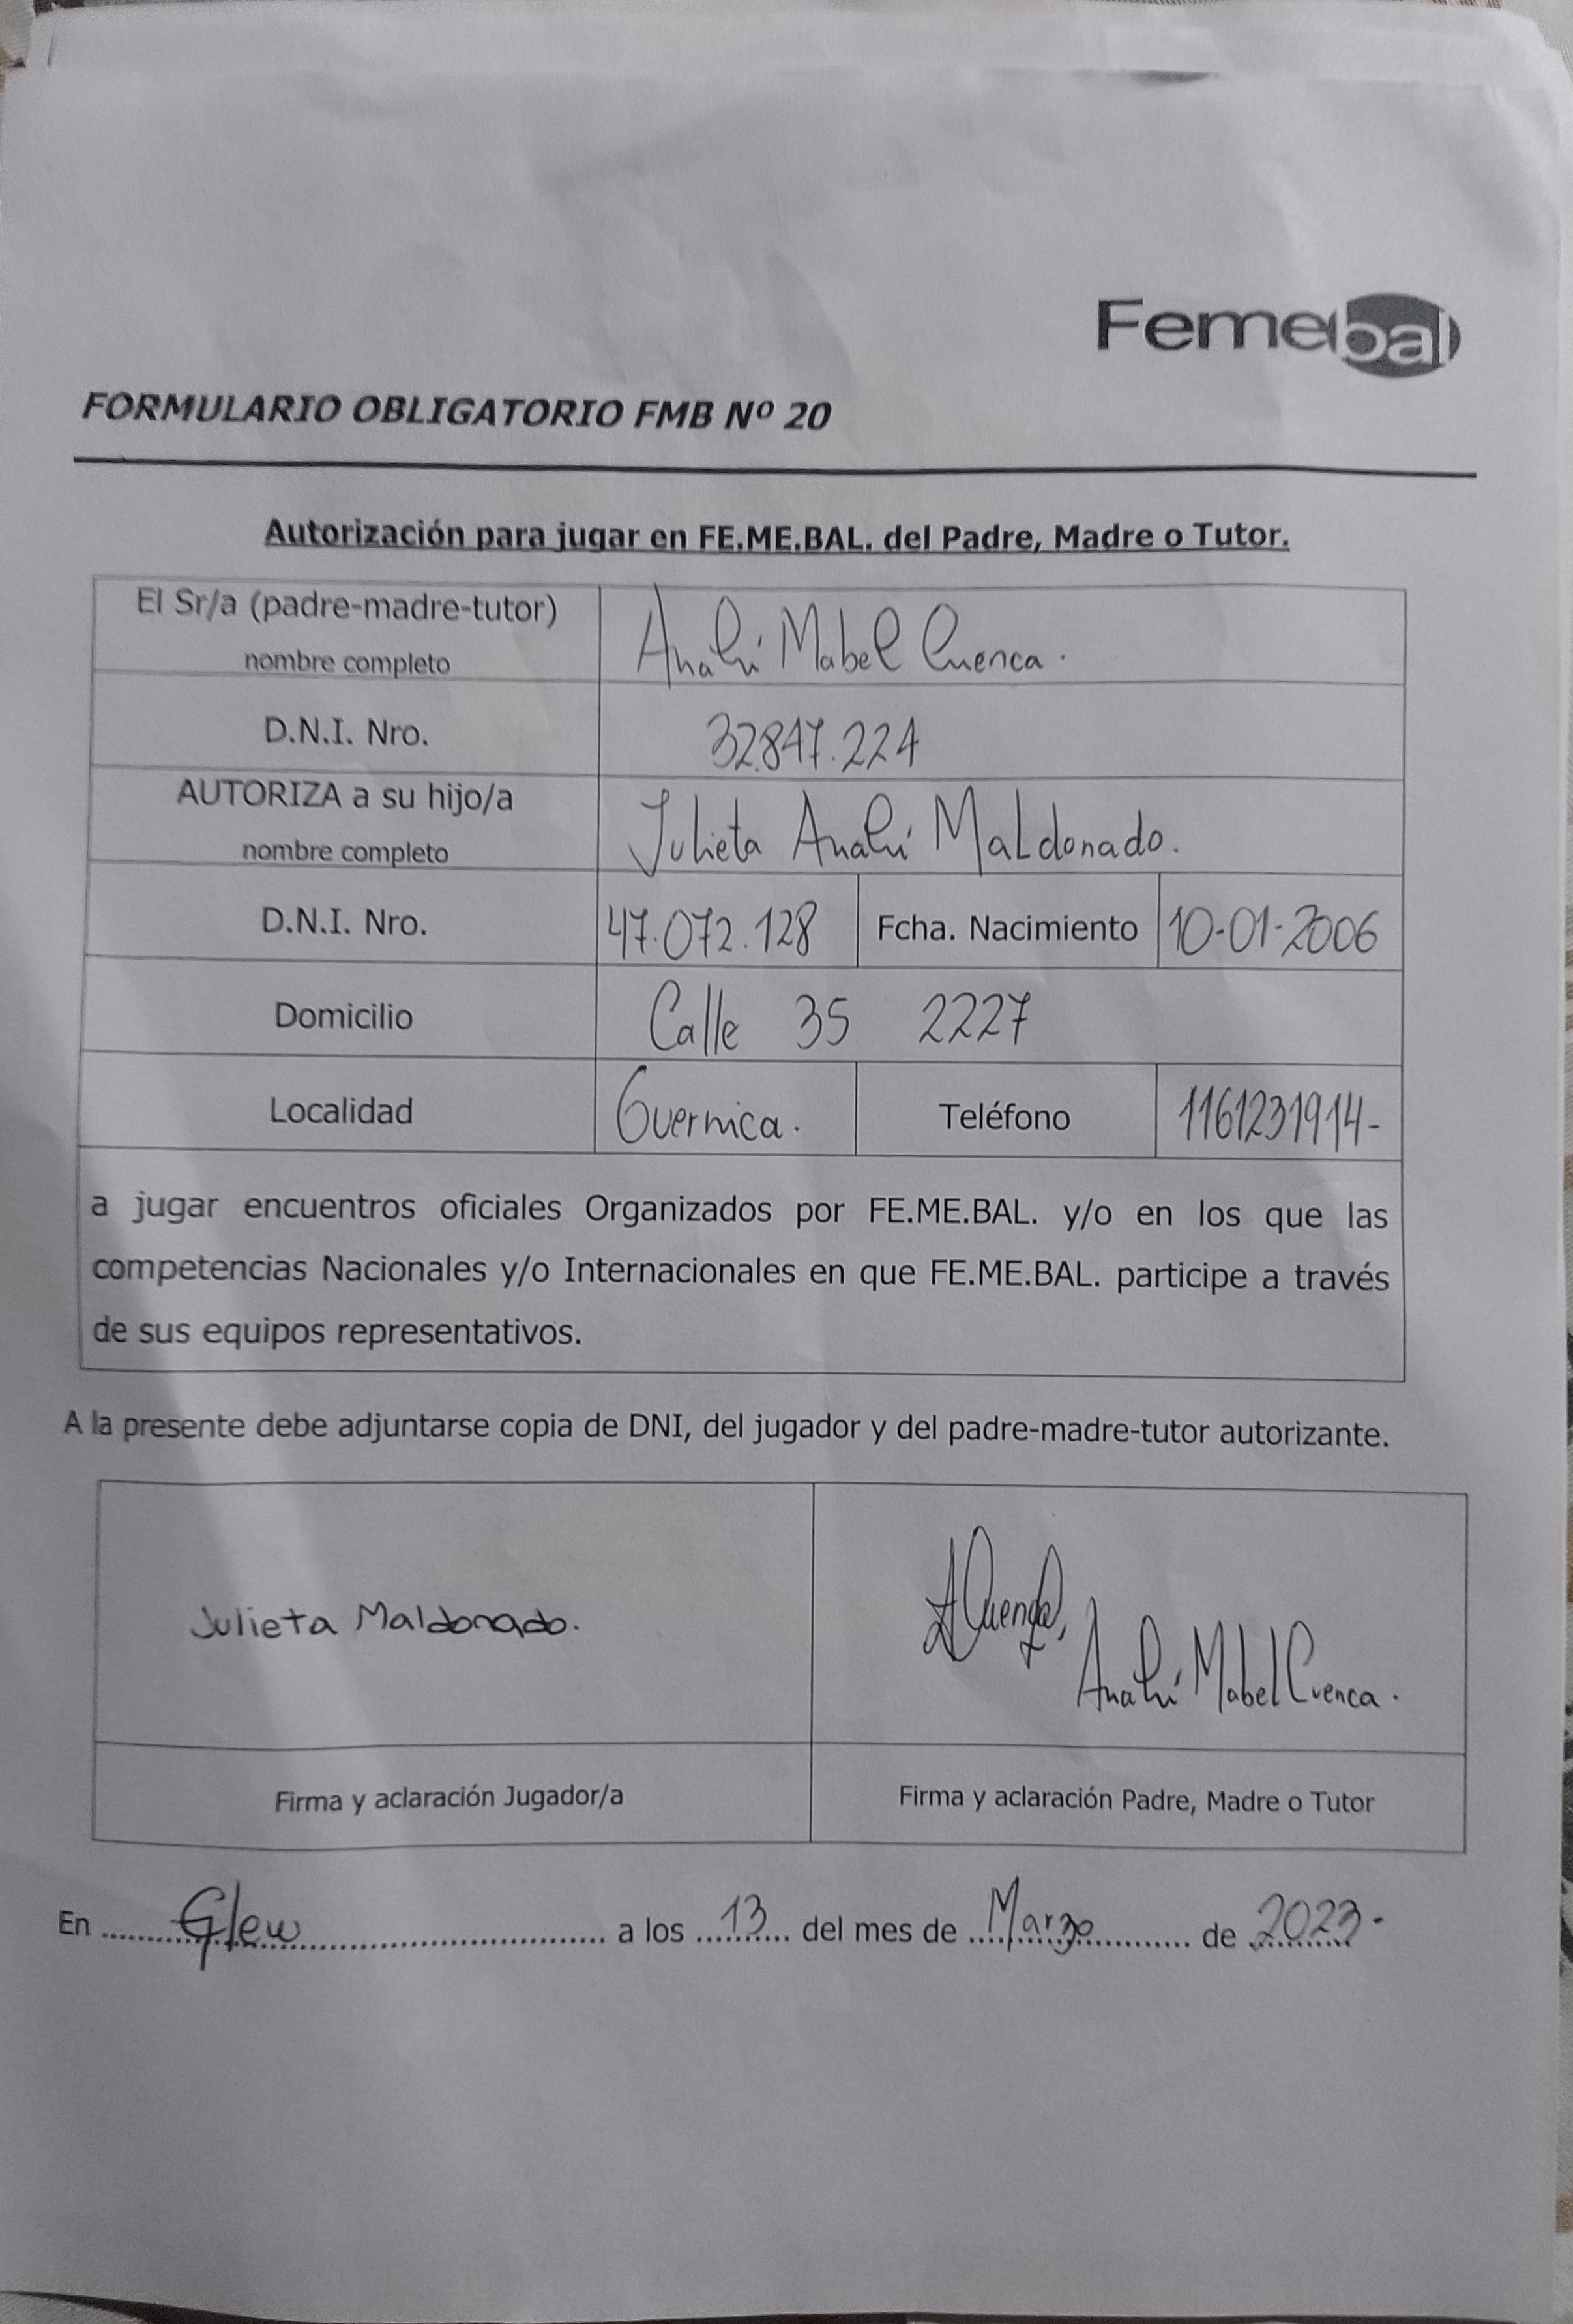 Femebal
FORMULARIO OBLIGATORIO FMB Nº 20
Autorización para jugar en FE.ME.BAL. del Padre, Madre o Tutor.
El Sr/a (padre-madre-tutor)
nombre completo
Anahí Mabel Cuenca.
D.N.I. Nro.
32.847.224
AUTORIZA a su hijo/a
nombre completo
Julieta Anahí Maldonado.
D.N.I. Nro.
47.072.128
Fcha. Nacimiento
10-01-2006
Domicilio
Calle 35 2227
Localidad
Guernica.
Teléfono
1161231914-
a jugar encuentros oficiales Organizados por FE.ME.BAL. y/o en los que las
competencias Nacionales y/o Internacionales en que FE.ME.BAL. participe a través
de sus equipos representativos.
A la presente debe adjuntarse copia de DNI, del jugador y del padre-madre-tutor autorizante.
Julieta Maldonado.
ACuenca,
Anahí Mabel Cuenca.
Firma y aclaración Jugador/a
Firma y aclaración Padre, Madre o Tutor
En Glew a los 13 del mes de Marzo de 2023-